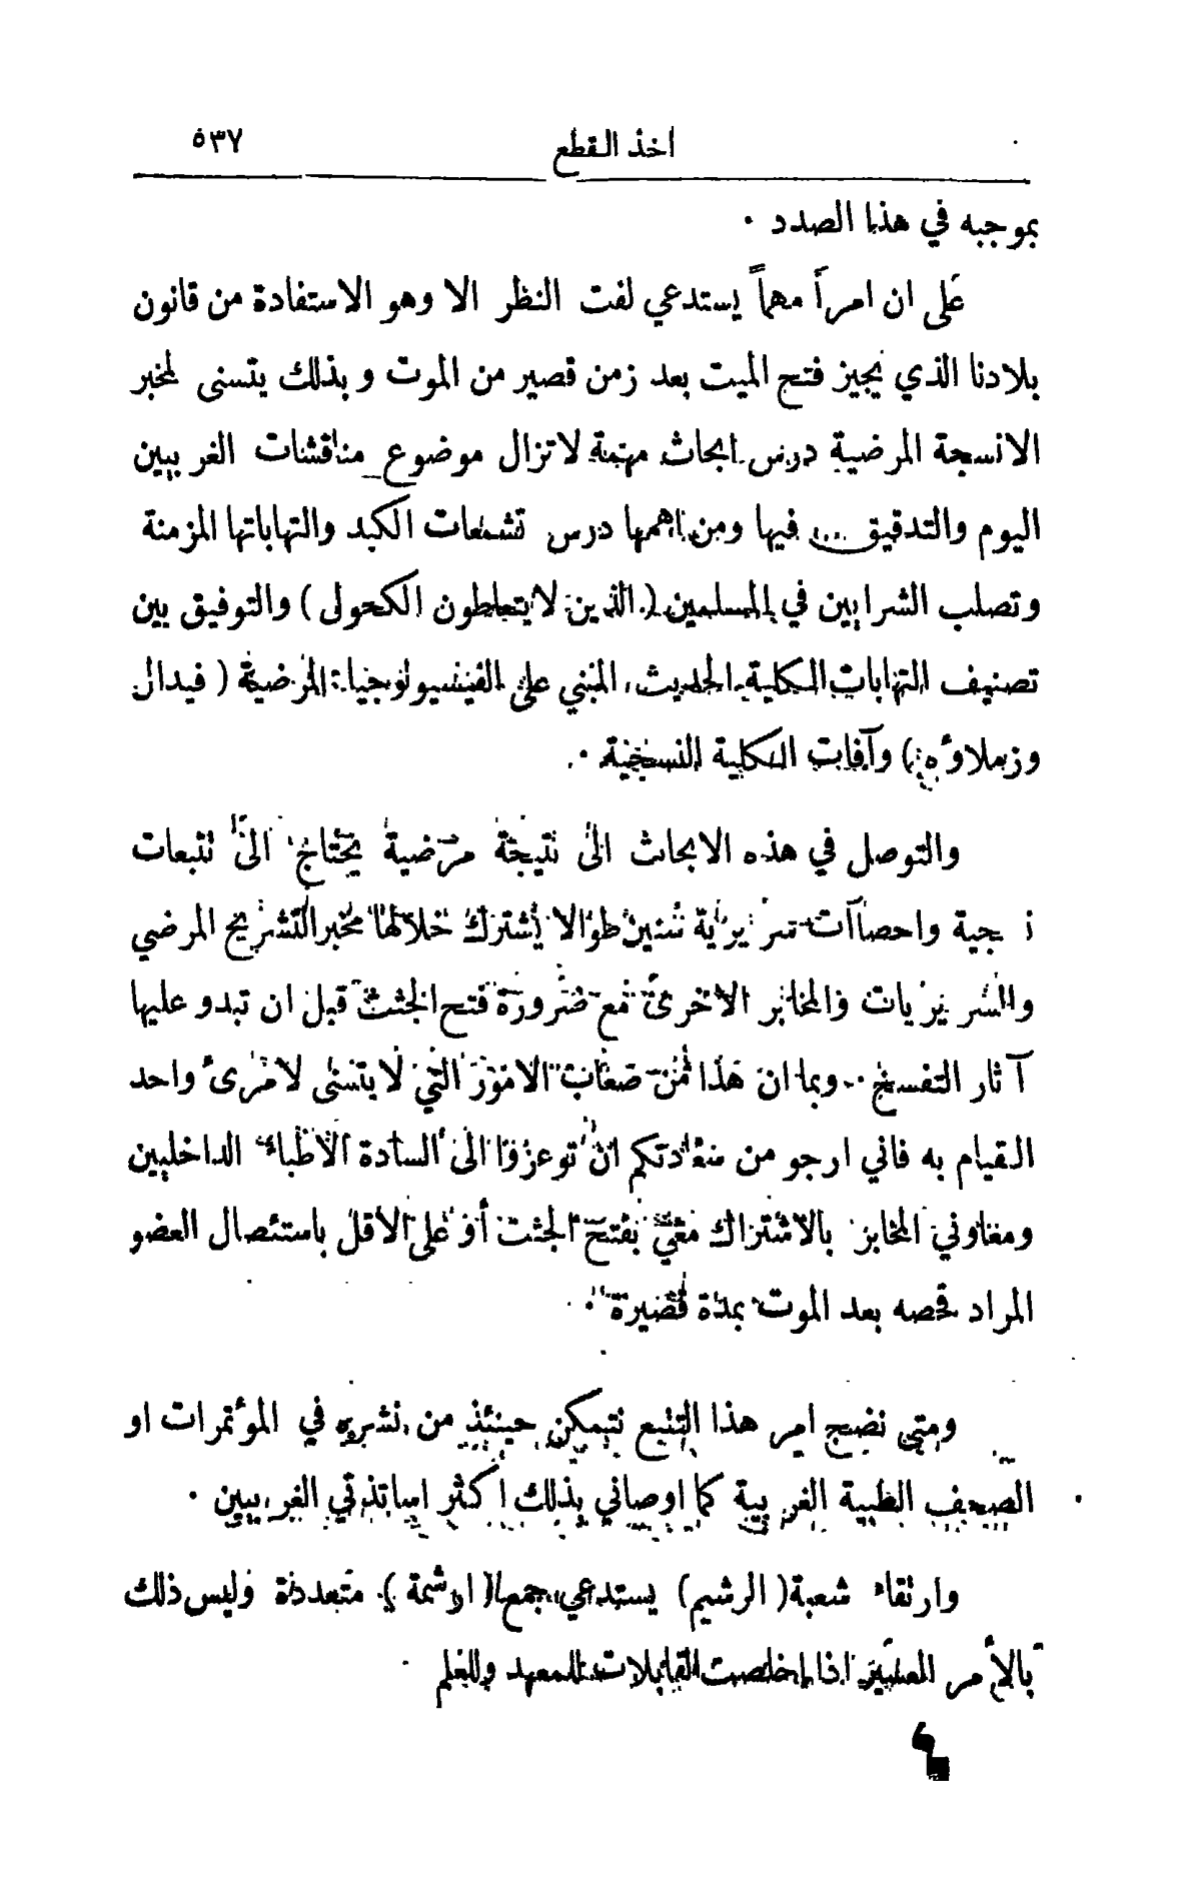 اخذ القطع ٥٣٧
بموجبه في هذا الصدد ٠
على ان امراً مهماً يستدعي لفت النظر الا وهو الاستفادة من قانون
بلادنا الذي يجيز فتح الميت بعد زمن قصير من الموت وبذلك يتسنى لمخبر
الانسجة المرضية درس ابحاث مهمة لاتزال موضوع مناقشات الغربيين
اليوم والتدقيق فيها ومن اهمها درس تشمعات الكبد والتهاباتها المزمنة
وتصلب الشرايين في المسلمين (الذين لايتعاطون الكحول) والتوفيق بين
تصنيف التهابات الكلية الحديث المبني على الفيسيولوجيا المرضية (فيدال
وزملاؤه) وآفات الكلية النسجية ٠
والتوصل في هذه الابحاث الى نتيجة مرضية يحتاج الى تتبعات
جية واحصاآت سريرية سنين طوالا يشترك خلالها مخبر التشريح المرضي
والسريريات والمخابر الاخرى مع ضرورة فتح الجثث قبل ان تبدو عليها
آثار التفسخ ٠ وبما ان هذا من صعاب الامور التي لايتسنى لامرىء واحد
القيام به فاني ارجو من سعادتكم ان توعزوا الى السادة الاطباء الداخليين
ومعاوني المخابر بالاشتراك معي بفتح الجثث أو على الاقل باستئصال العضو
المراد فحصه بعد الموت بمدة قصيرة ٠
ومتى نضج امر هذا التتبع نتمكن حينئذ من نشره في المؤتمرات او
الصحف الطبية الغربية كما اوصاني بذلك اكثر اساتذتي الغربيين ٠
وارتقاء شعبة (الرشيم) يستدعي جمع (ارشمة) متعددة وليس ذلك
بالأمر العسير اذا اخلصت القابلات للمعهد وللعلم